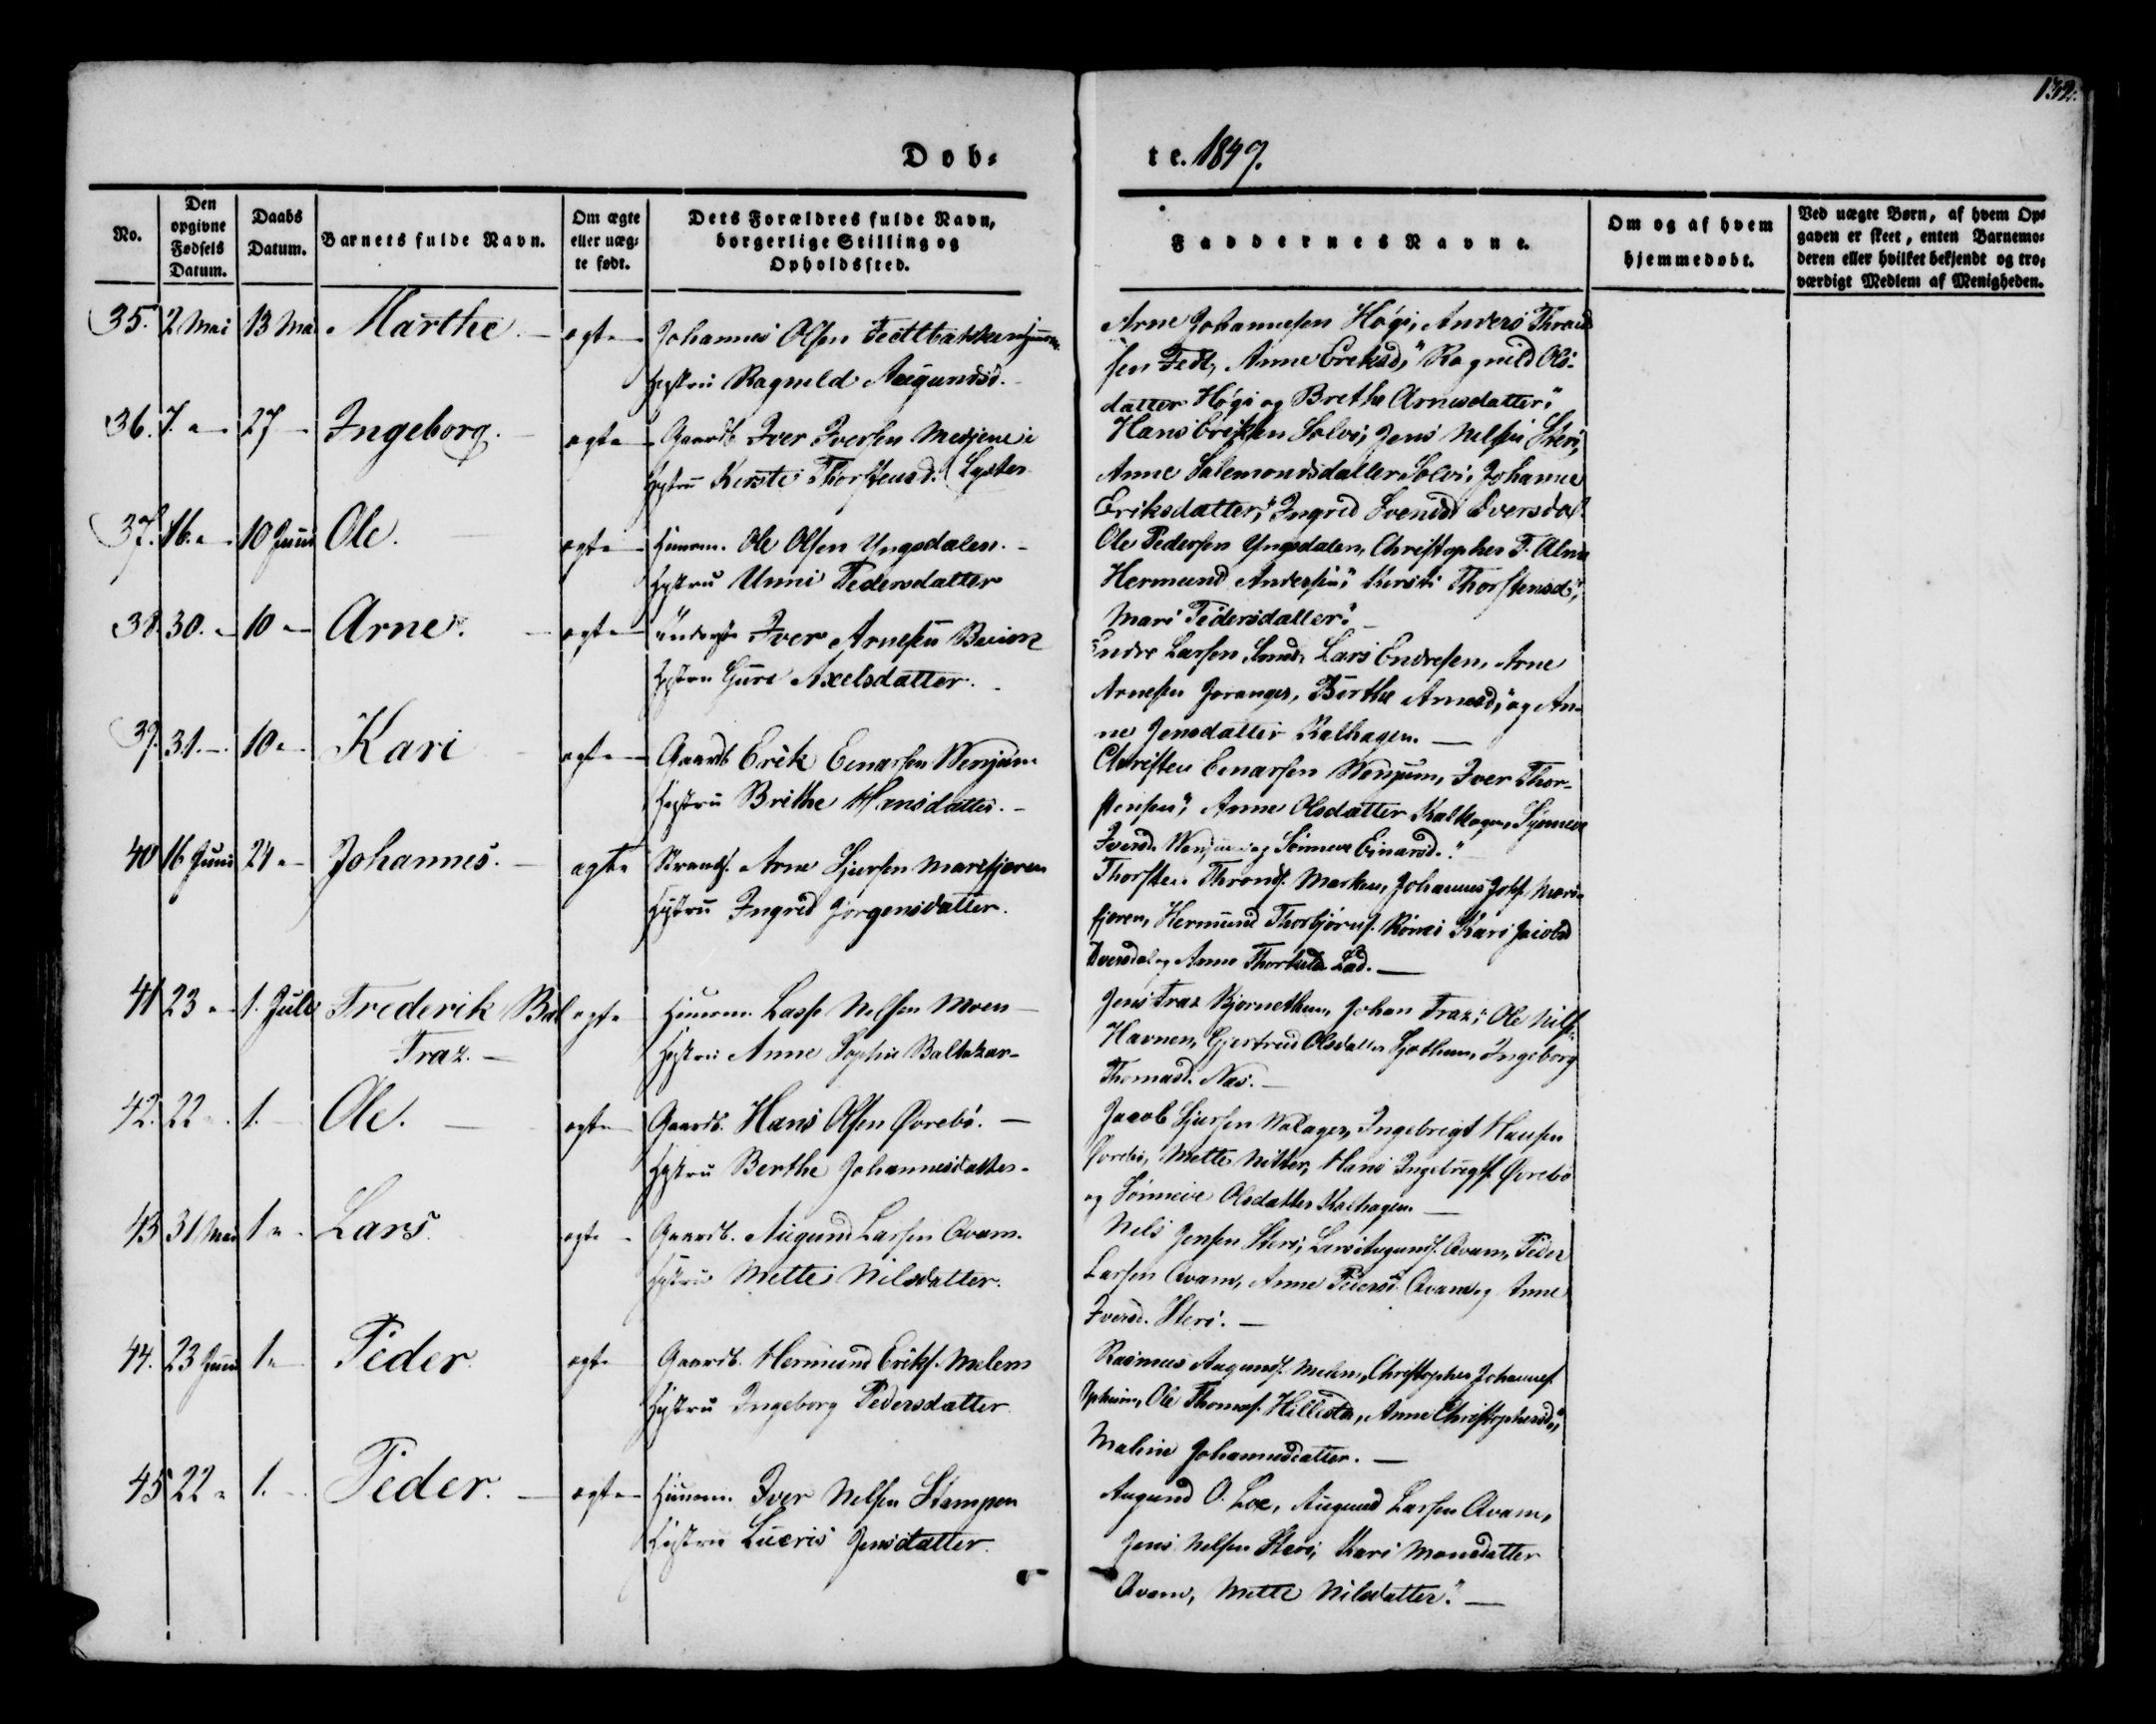 132.
Døb-
te. 1849.
No.
Den opgivne Fødsels Datum.
Daabs Datum.
Barnets fulde Navn.
Om ægte eller uæg-te født.
Dets Forældres fulde Navn, borgerlige Stilling og Opholdssted.
Faddernes Navne.
Om og af hvem hjemmedøbt.
Ved uægte Børn, af hvem Op-gaven er skeet, enten Barnemo-deren eller hvilket bekjendt og tro-værdigt Medlem af Menigheden.
35. 2 Mai 13 Mai Marthe. ægte Johannes Olsen
Hustru Ragnild Augundsd.
Arne Johannesen Høgi, Anders Thrond
sen Fedt, Anne Eriksd," Ragnild Ols-
datter Høgi og Brethe Arnesdatter"
36. 7. " 27 Ingeborg. ægte Gaardb. Iver Iversen
Hustru Kersti Thorstensd. Lyster
Hans Eriksen Solvi, Jens Nelsen
Anne Salemondsdatter Solvi, Johanne
Eriksdatter," Ingrid
37. 16. " 10 Juni Ole. ægte Huusm. Ole Olsen Yngsdalen.
Hustru Unni Pedersdatter
Ole Pedersen Yngsdalen, Christopher
Hermund Andersen," Kersti Thorstensd,"
Mari Pedersdatter"
38. 30. " 10 " Arne. ægte Iver Arnesen
Hustru Guri Axelsdatter.
Endre Larsen Lars Endresen, Arne
Arnesen Joranger, Berthe Arnesd," og An-
ne Jensdatter Kalhagen.
39. 31. 10 " Kari ægte Gaardb. Erik Einarsen Wenjum
Hustru Brithe Hansdatter.
Christen Einarsen Wenjum, Iver Thor-
stensen," Anne Olsdatter Kalhagen,
Iversd. Wenjum og Sønneve Einarsd."
40 16 Juni 24 " Johannes. ægte Strands. Arne Sjursen Marifjæren
Hustru Ingrid Jørgensdatter.
Thorsten Thronds. Marken, Johannes Mari-
fjæren, Hermund Thorbjørns. Kari
og Anne
41 23 " 1. Juli Frederik Bal ægte Huusm. Lasse Nelsen Moen
Fraz. Hustru Anne Sophie Baltazar-
Jens Fraz Johan Fraz," Ole Nils.
Havnen, Gjertrud Olsdatter Ingeborg
Thomasd. Næs.
42. 22 1. Ole. ægte Gaardb. Hans Olsen Øvrebø.
Hustru Berthe Johannesdatter.
Jacob Sjursen Ingebrigt Hansen
Øvrebø, Mette Nitter, Hans Ingebrigts. Øvrebø
og Sønneve Olsdatter Kalhagen.
43 31 Mai 1 " Lars. ægte Gaardb. Augund Larsen Qvam.
Hustru Mette Nilsdatter.
Nils Jensen Lars Augunds. Qvam, Peder
Larsen Qvam, Anne Qvam og Anne
Iversd.
44. 23 Juni 1 " Peder. ægte Gaardb. Hermund Eriks. Melem
Hustru Ingeborg Pedersdatter.
Rasmus Augunds. Melem, Christopher Johannes.
Ole Thomas. Hillestad, Anne Christophersd,"
Malene Johannesdatter.
45 22 " 1. Peder. ægte Huusm. Iver Nelsen Stampen
Hustru Jensdatter.
Augund O. Augund Larsen Qvam,
Jens Nelsen Kari Monsdatter
Qvam, Mette Nilsdatter."